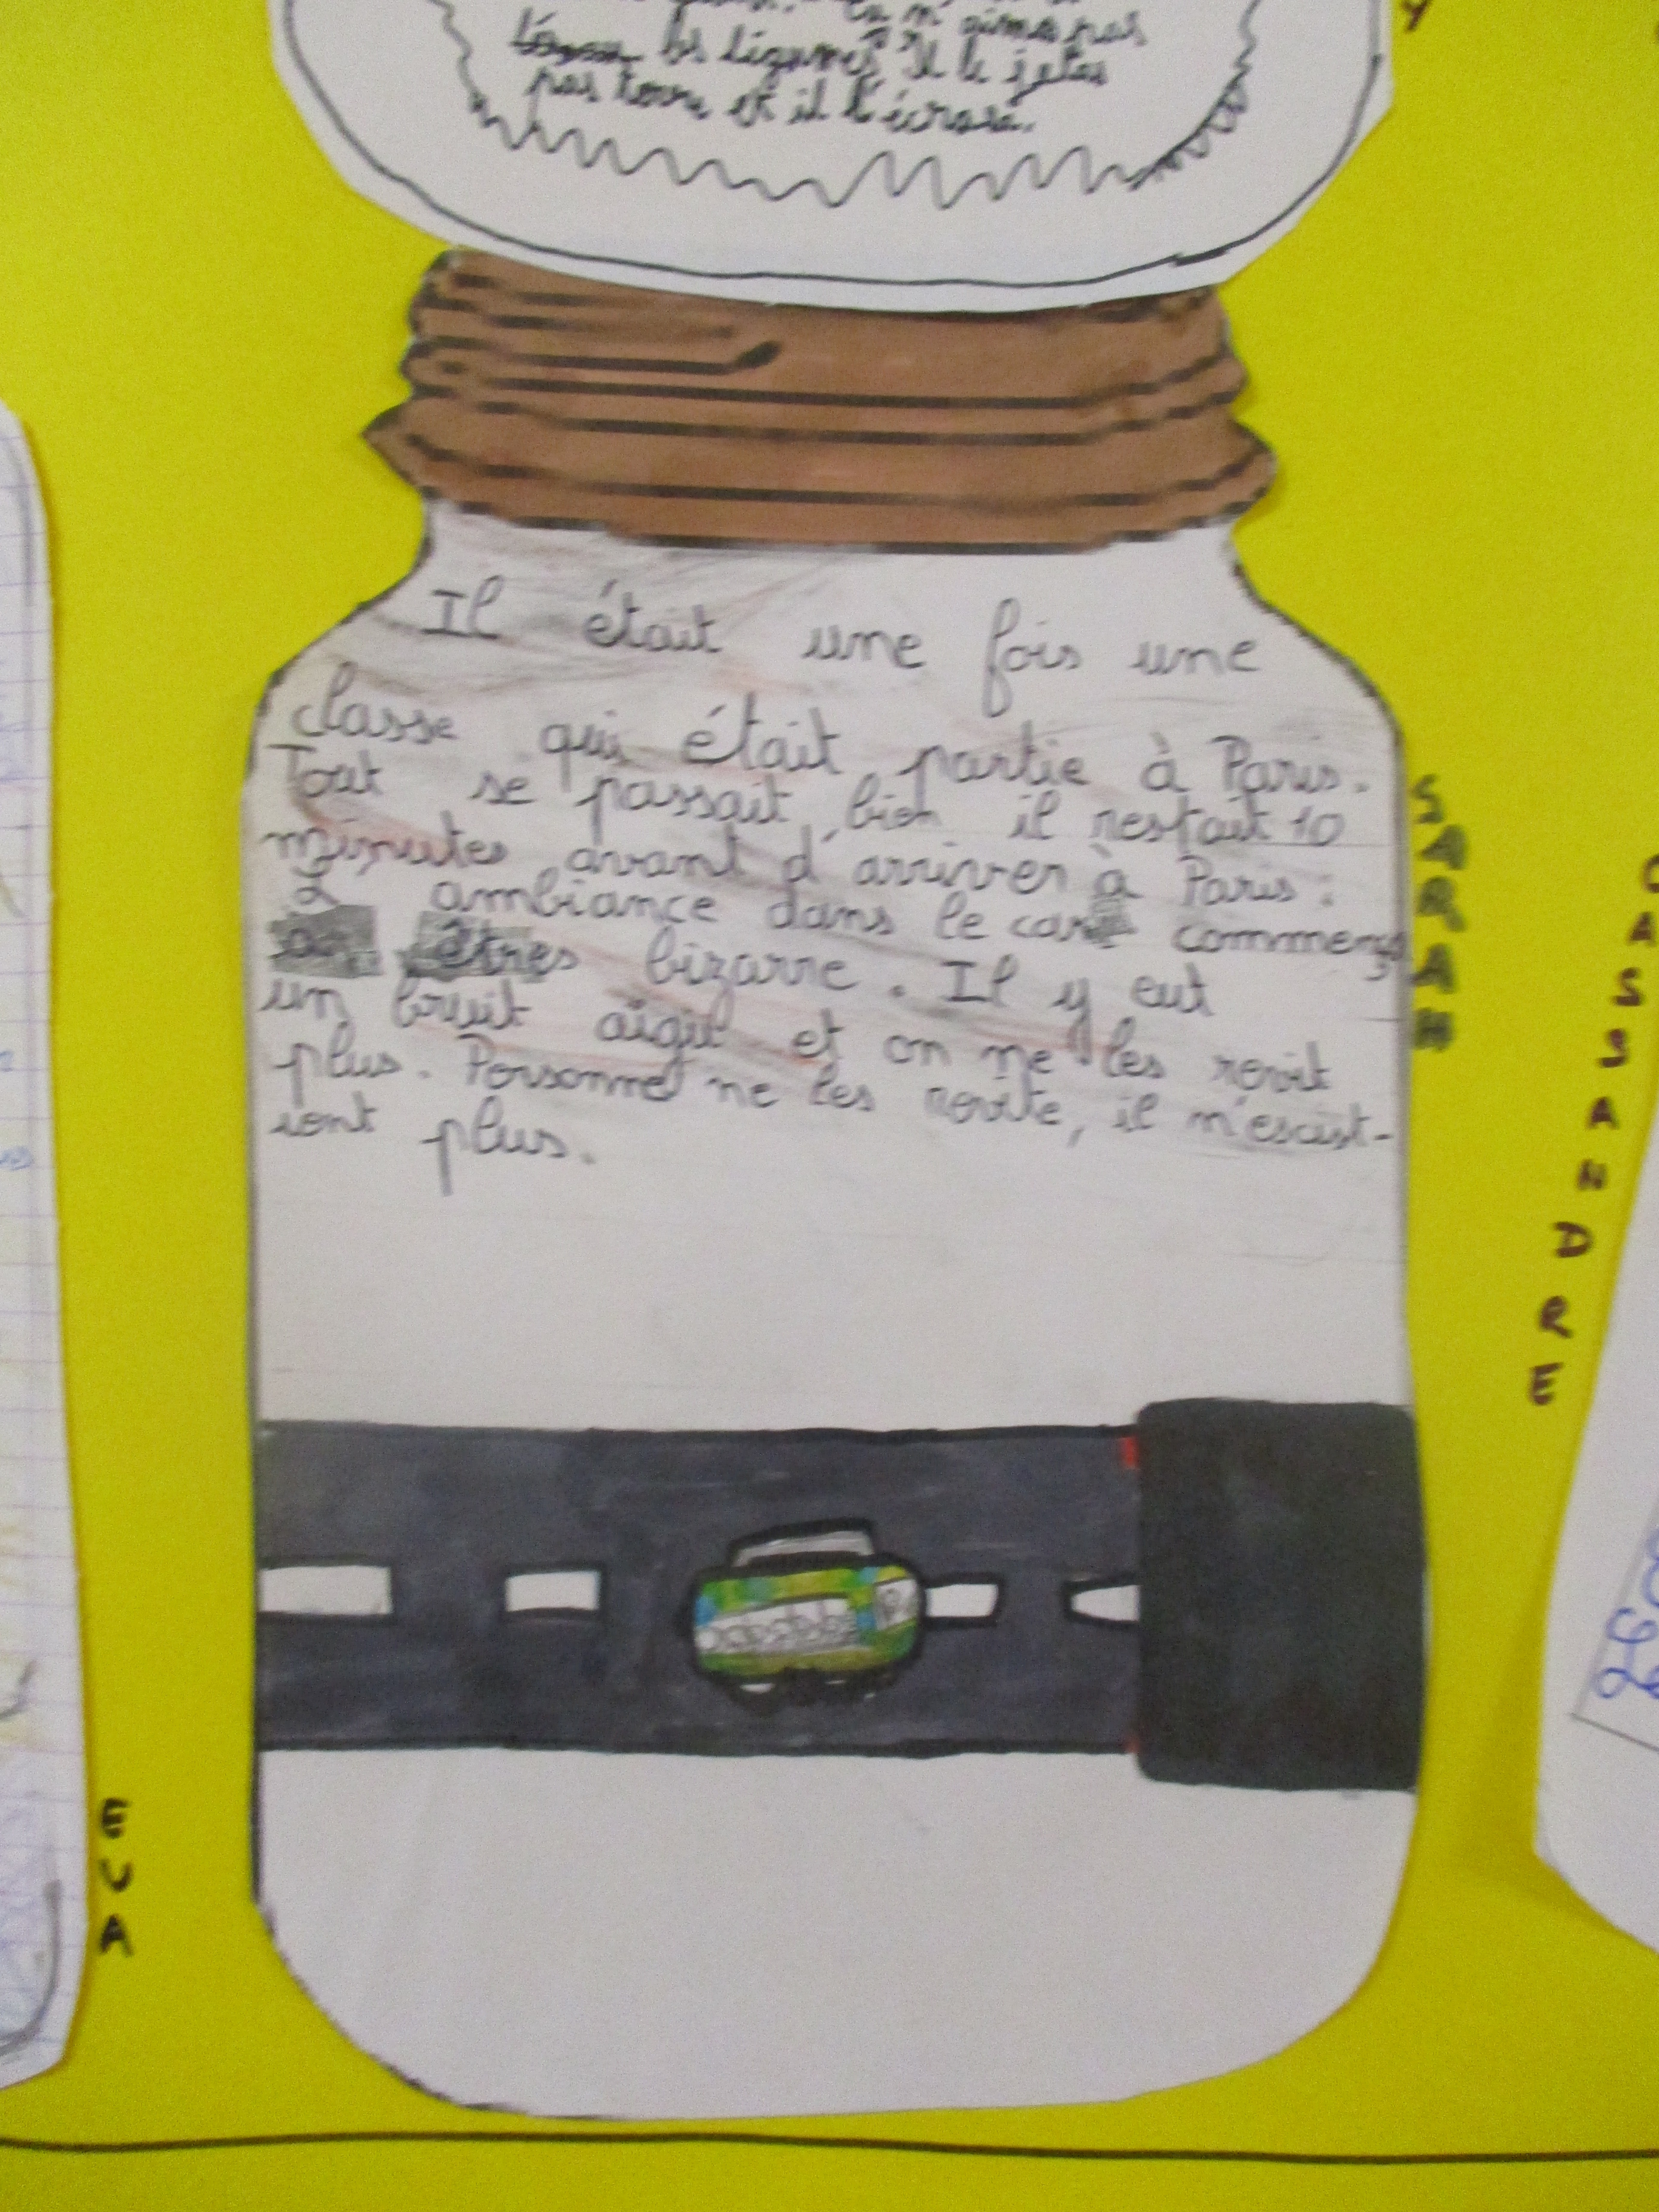 n'aime pas
les légumes". Il le jetas
par terre et il l'écrasa.
Il était une fois une
classe qui était partie à Paris.
Tout se passait bien il restait 10
minutes avant d'arriver à Paris :
L ambiance dans le car commença
a êtres bizarre. Il y eut
un bruit aigu et on ne les revit
plus. Personne ne les revite, il n'exist-
iont plus.
SARAH
CASSANDRE
EVA